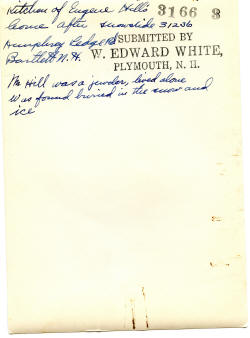 Kitchen of Eugene Hill's
3166 3
home after snowslide 31256
SUBMITTED BY
Humphrey Ledge
W. EDWARD WHITE,
Bartlett N.H.
PLYMOUTH, N. H.
Mr Hill was a jeweler, lived alone
was found buried in the snow and
ice